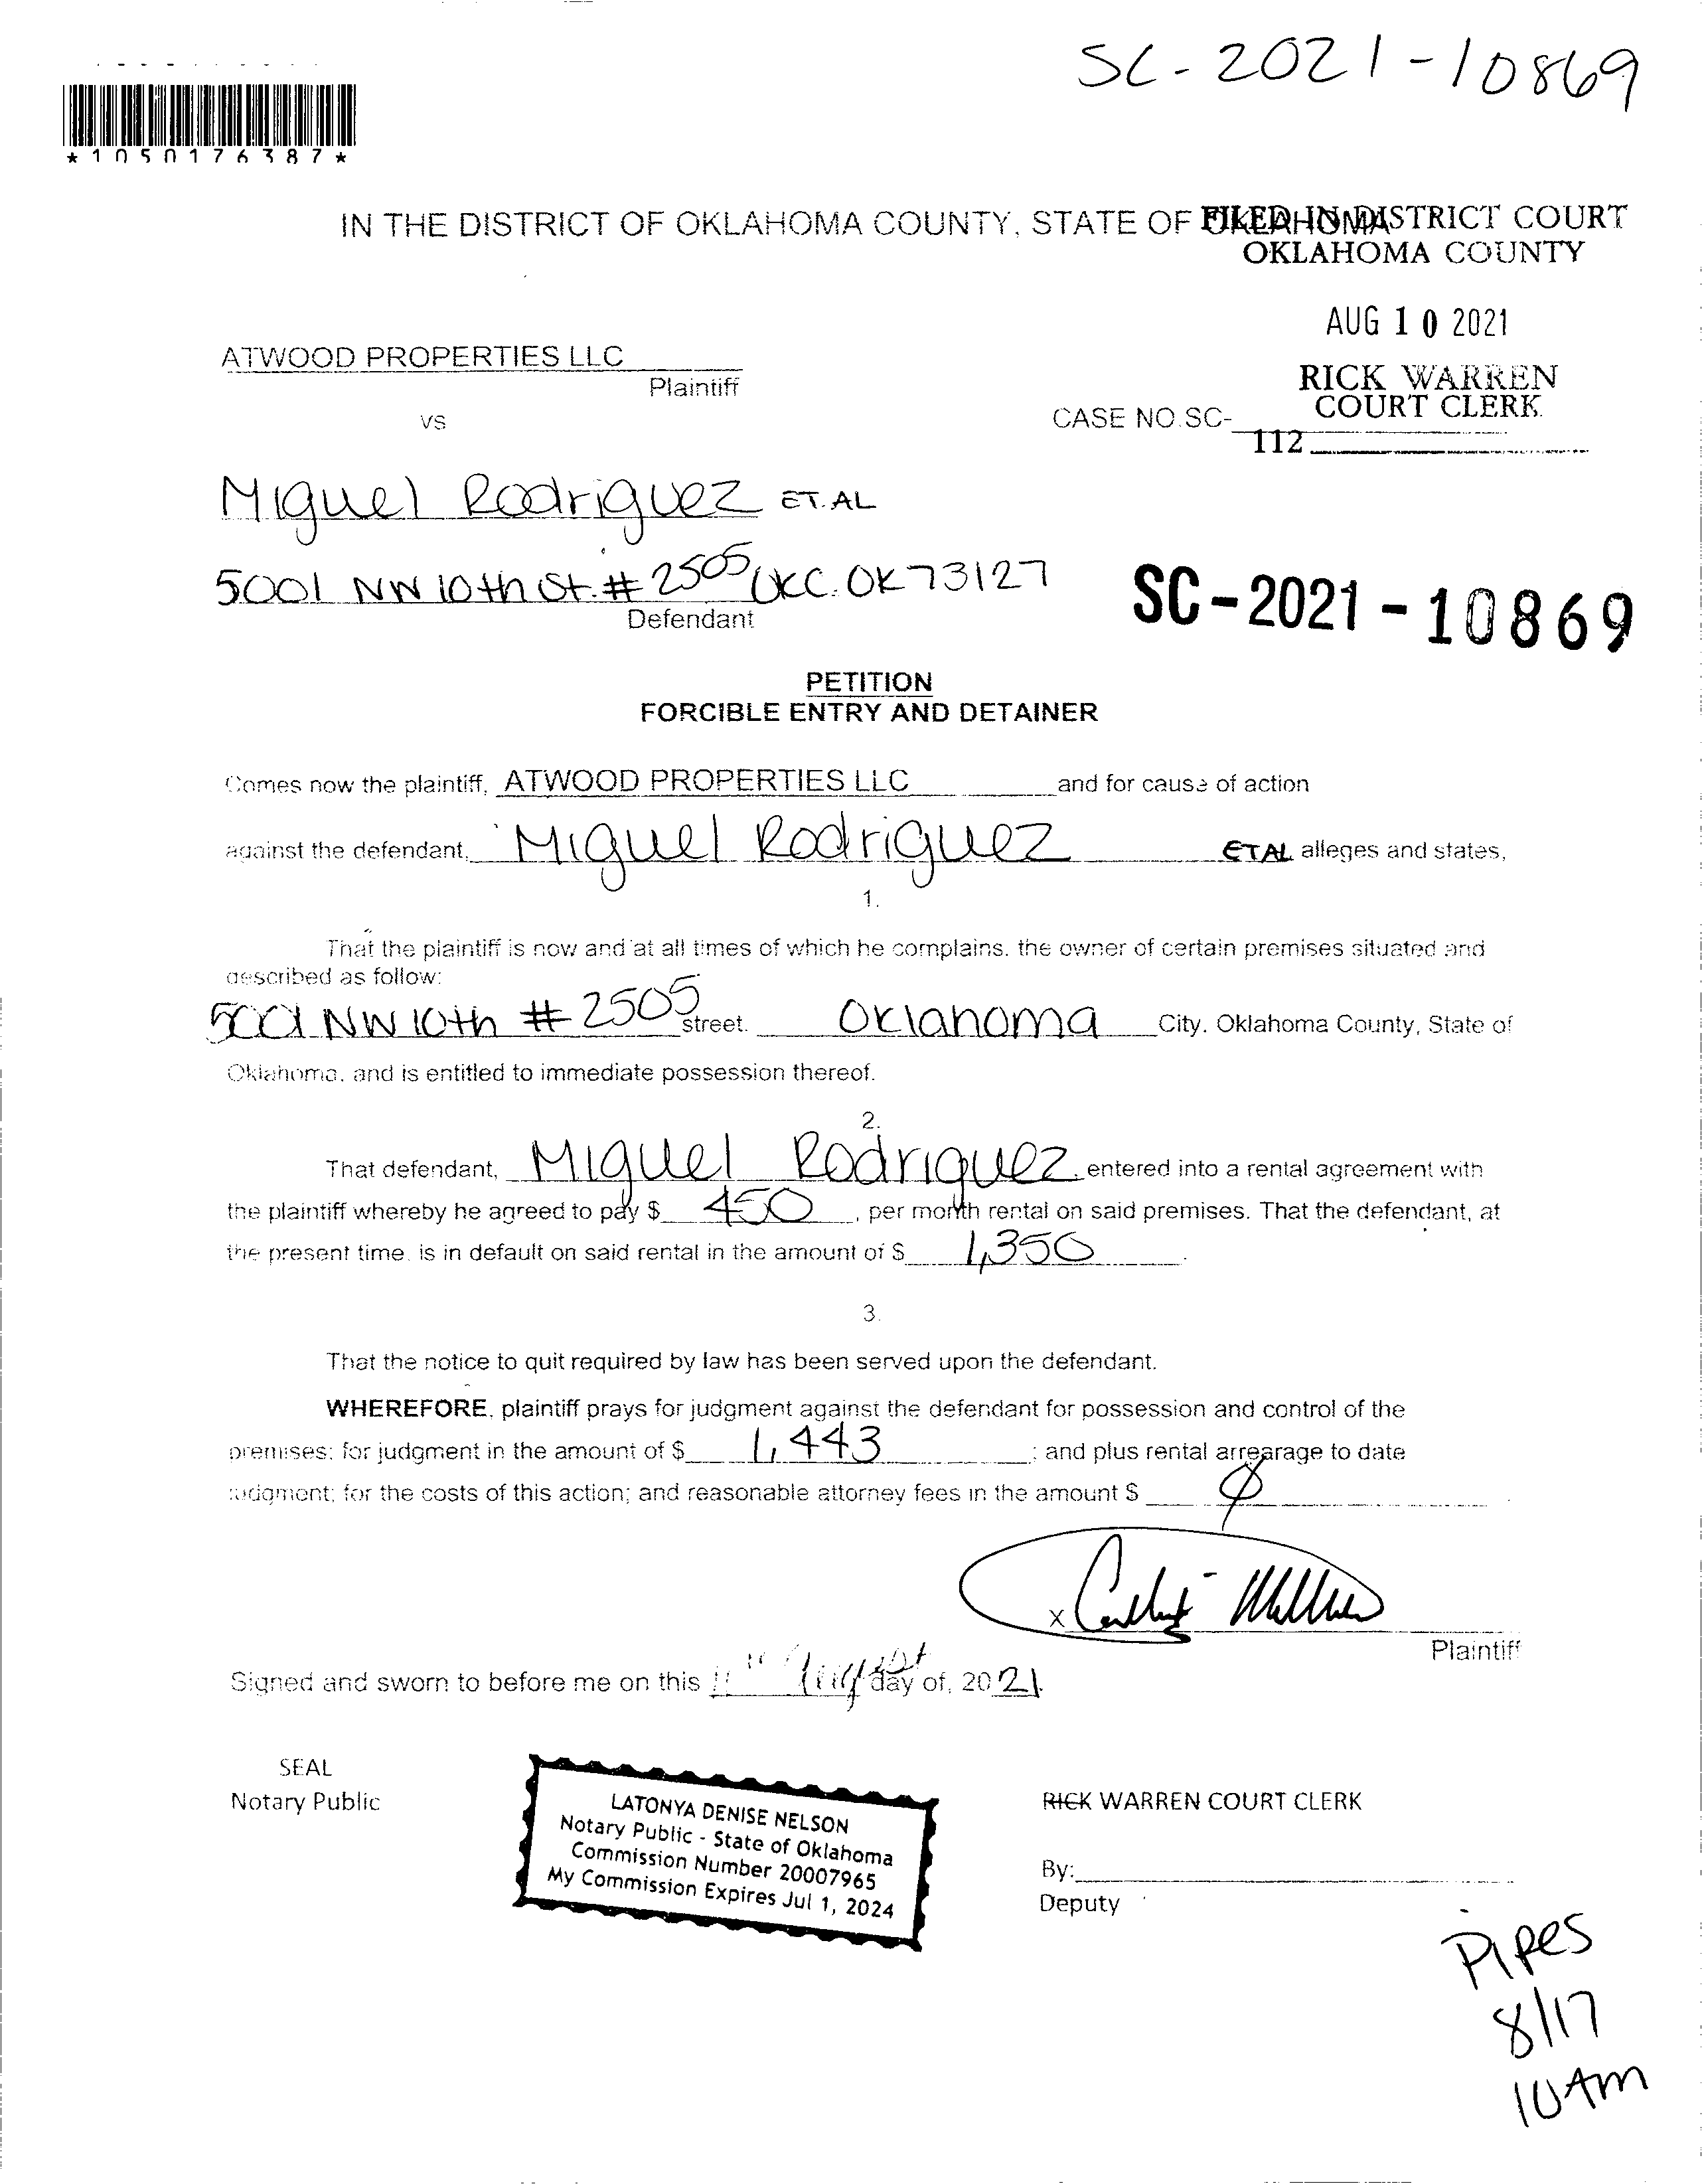 SC-2021-10869
*1050176387*
IN THE DISTRICT OF OKLAHOMA COUNTY, STATE OF OKLAHOMA
FILED IN DISTRICT COURT
OKLAHOMA COUNTY
AUG 10 2021
RICK WARREN
COURT CLERK
112
ATWOOD PROPERTIES LLC
Plaintiff
vs
CASE NO.SC-
Miguel Rodriguez ET.AL
5001 NW 10th St. # 2505 OKC. OK 73127
Defendant
SC-2021-10869
PETITION
FORCIBLE ENTRY AND DETAINER
Comes now the plaintiff, ATWOOD PROPERTIES LLC and for cause of action
against the defendant, Miguel Rodriguez ETAL alleges and states,
1.
That the plaintiff is now and at all times of which he complains, the owner of certain premises situated and
described as follow:
5001 NW 10th # 2505 street, Oklahoma City, Oklahoma County, State of
Oklahoma, and is entitled to immediate possession thereof.
2.
That defendant, Miguel Rodriguez entered into a rental agreement with
the plaintiff whereby he agreed to pay $ 450, per month rental on said premises. That the defendant, at
the present time, is in default on said rental in the amount of $ 1,350.
3.
That the notice to quit required by law has been served upon the defendant.
WHEREFORE, plaintiff prays for judgment against the defendant for possession and control of the
premises; for judgment in the amount of $ 1,443; and plus rental arrearage to date
judgment; for the costs of this action; and reasonable attorney fees in the amount $ 0
X
Plaintiff
Signed and sworn to before me on this August day of, 2021.
SEAL
Notary Public
LATONYA DENISE NELSON
Notary Public - State of Oklahoma
Commission Number 20007965
My Commission Expires Jul 1, 2024
RICK WARREN COURT CLERK
By:
Deputy
Pipes
8/17
10 Am